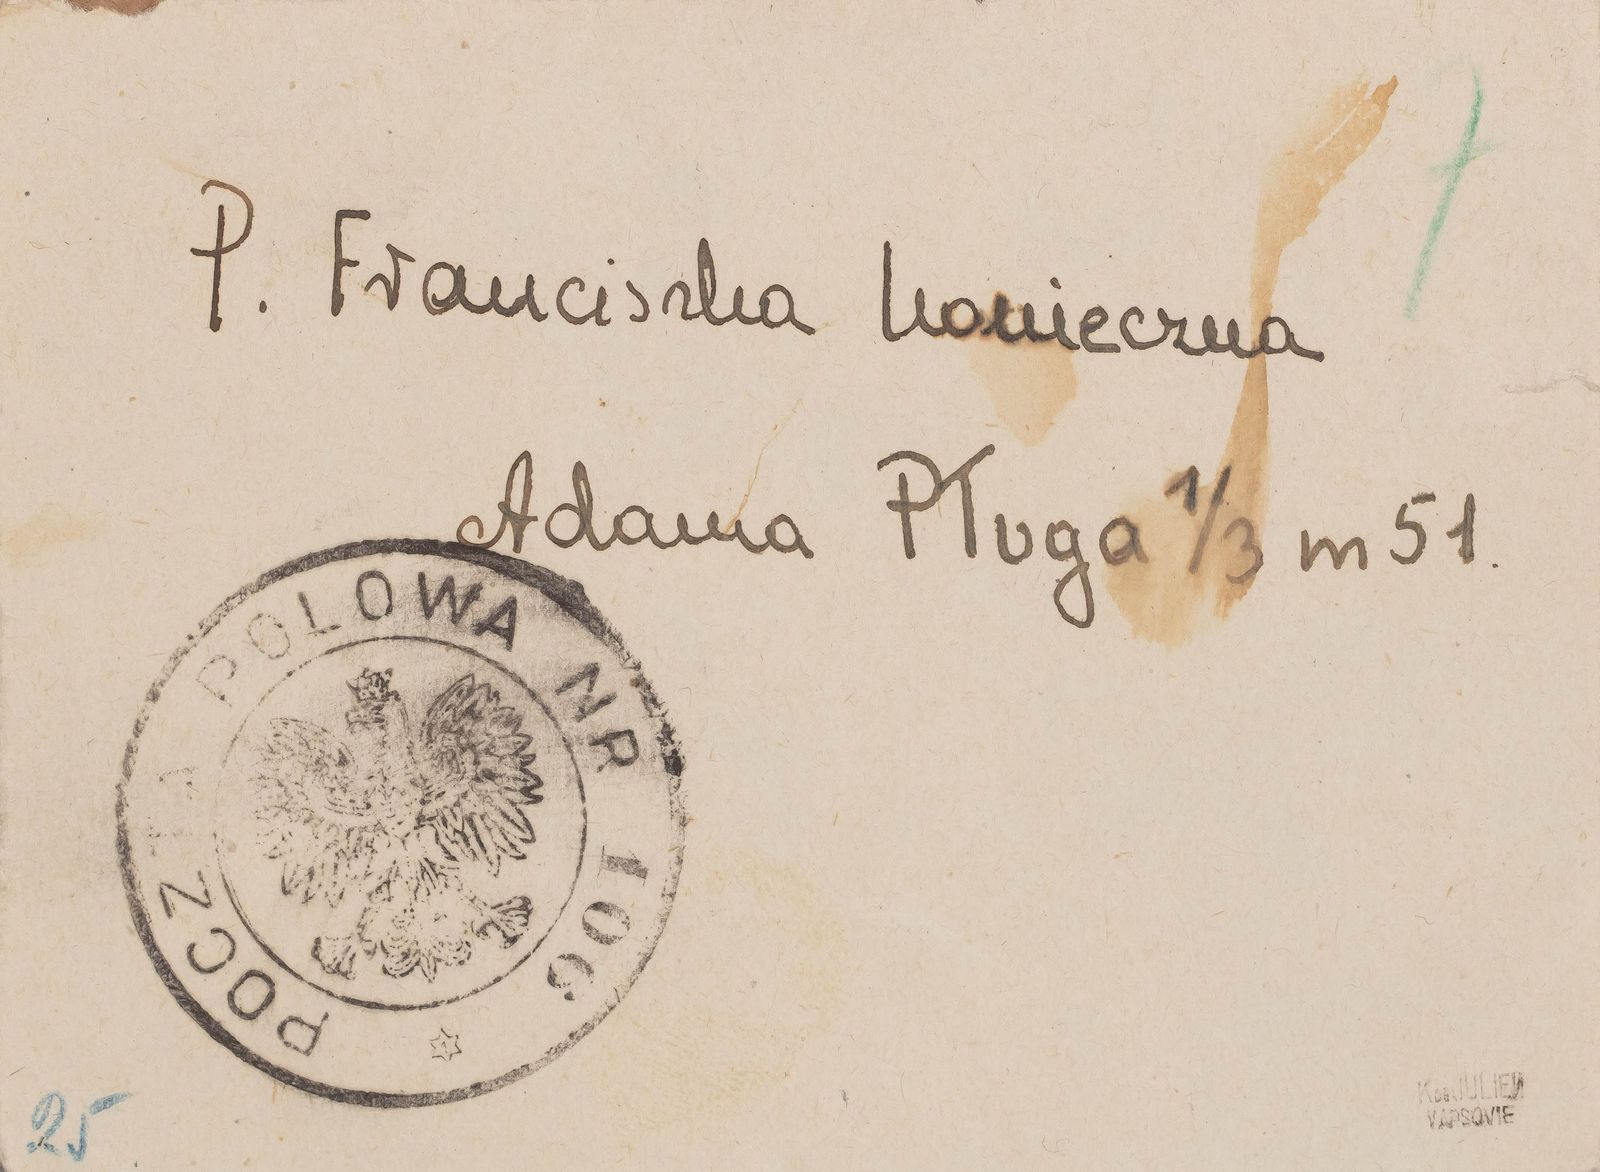 7
P. Franciszka Konieczna
Adama Pługa 1/3 m 51.
POCZTA POLOWA NR 106
25
JULIEN
VARSOVIE